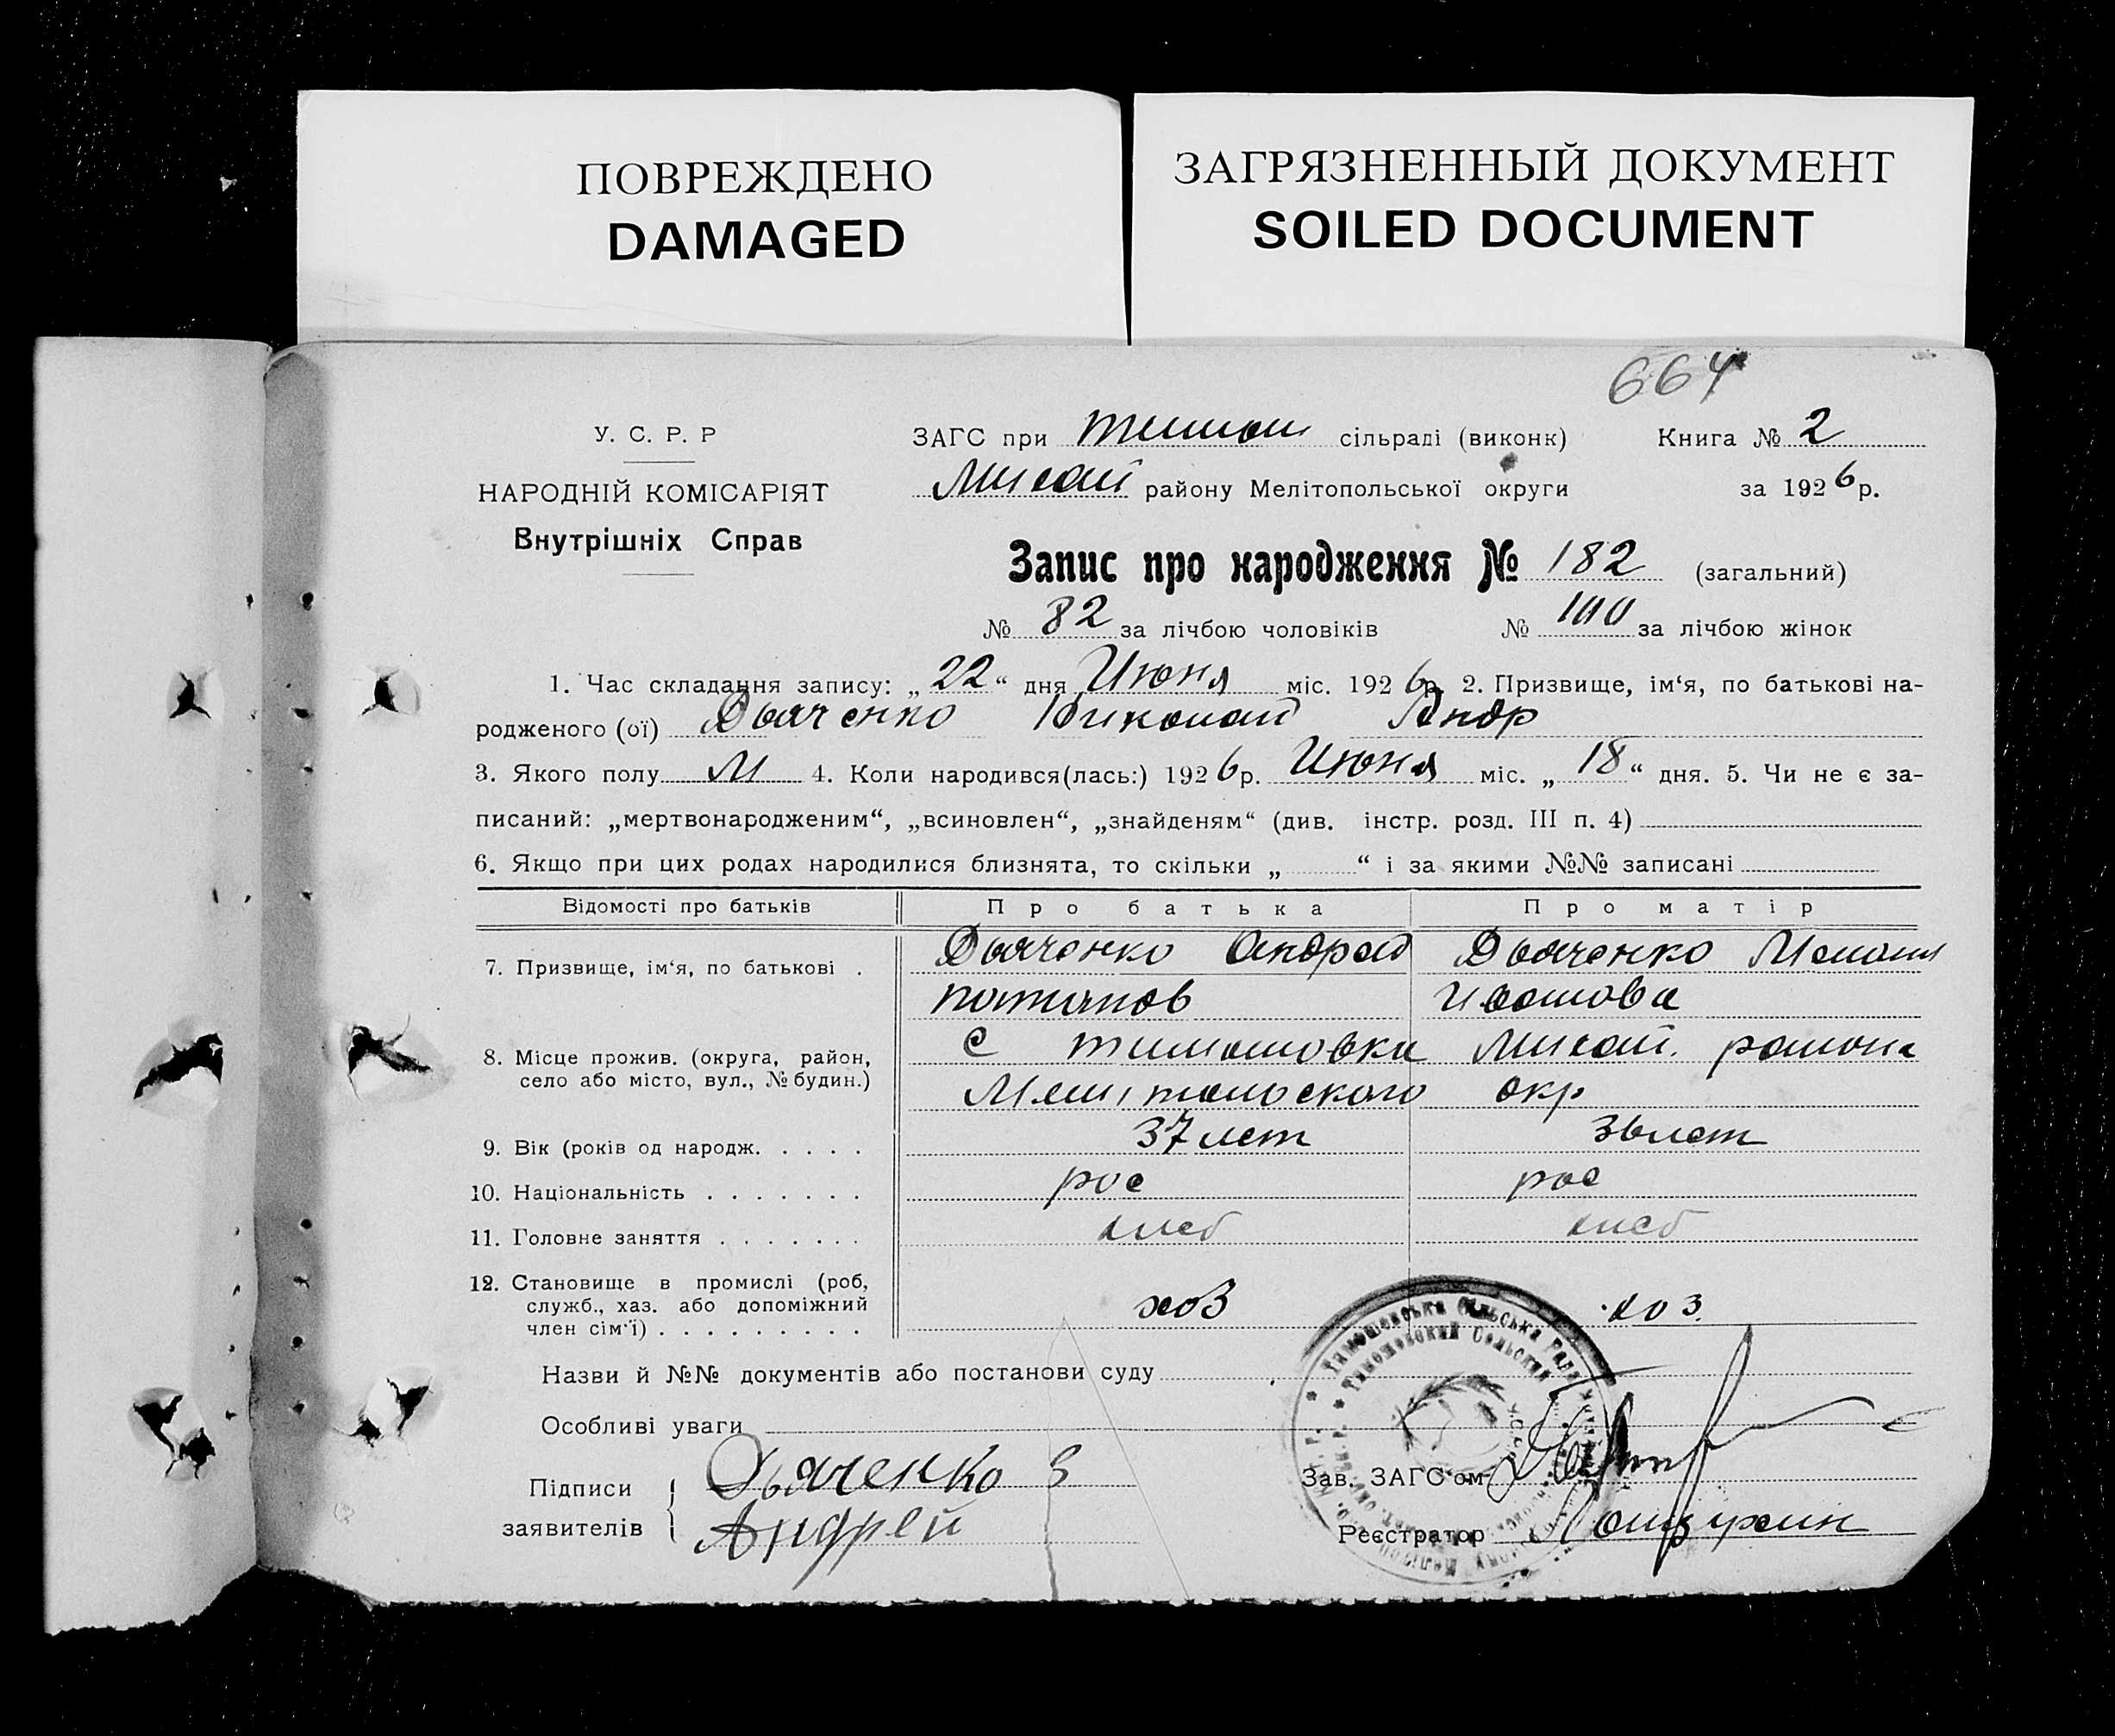 ПОВРЕЖДЕНО
DAMAGED
ЗАГРЯЗНЕННЫЙ ДОКУМЕНТ
SOILED DOCUMENT
664
У. С. Р. Р
НАРОДНІЙ КОМІСАРІЯТ
Внутрішніх Справ
ЗАГС при Тимош сільраді (виконк) Книга № 2
Михай району Мелітопольської округи за 1926 р.
Запис про народження № 182 (загальний)
№ 82 за лічбою чоловіків № 100 за лічбою жінок
1. Час складання запису: „22“ дня Июня міс. 1926 р. 2. Призвище, ім‘я, по батькові на-
родженого (ої) Дьяченко Николай Андр
3. Якого полу М 4. Коли народився(лась:) 1926 р. Июня міс. „18“ дня. 5. Чи не є за-
писаний: „мертвонародженим“, „всиновлен“, „знайденям“ (див. інстр. розд. III п. 4)
6. Якщо при цих родах народилися близнята, то скільки „ “ і за якими №№ записані
Відомості про батьків Про батька Про матір
7. Призвище, ім‘я, по батькові . Дьяченко Андрей Дьяченко
Потапов
8. Місце прожив. (округа, район, С Тимошовка Михай. района
село або місто, вул., № будин.) Мелитопольского окр
9. Вік (років од народж. . . . . 37 лет 36 лет
10. Національність . . . . . . . рос рос
11. Головне заняття . . . . . . . хлеб хлеб
12. Становище в промислі (роб, хоз хоз.
служб., хаз. або допоміжний
член сім‘ї) . . . . . . . . .
Назви й №№ документів або постанови суду
Особливі уваги
Підписи Дьяченко
заявителів Андрей
Зав. ЗАГС‘ом
Реєстратор
Тимошівська Сільська Рада
Тимошовский Сельский